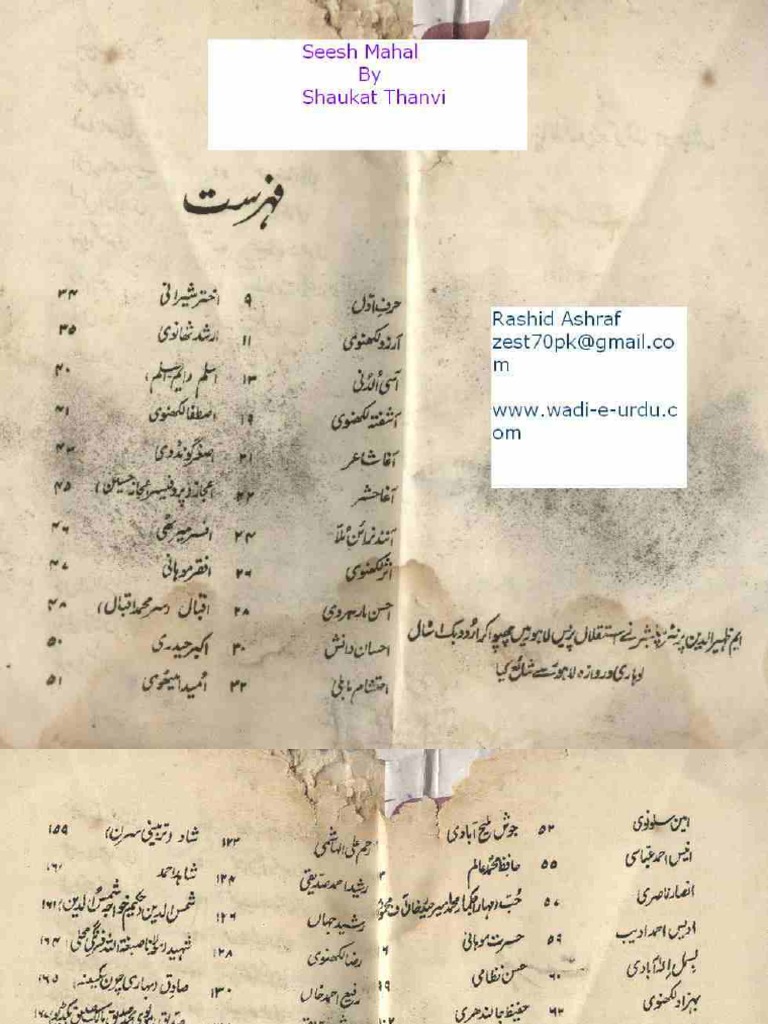 Seesh Mahal
By
Shaukat Thanvi
Rashid Ashraf
zest70pk@gmail.co
m
www.wadi-e-urdu.c
om
ایم ظہیر الدین پرنٹر پبلشر نے استقلال پریس لاہور میں چھپوا کر اردو بک اسٹال
لوہاری دروازہ لاہور سے شائع کیا
فہرست
حرفِ اول ۹
آرزو لکھنوی ۱۱
آسی الدنی ۱۳
آشفتہ لکھنوی ۱۹
آغا شاعر ۲۱
آغا حشر ۲۲
آنند نرائن ملا ۲۴
اثر لکھنوی ۲۶
احسن مارہروی ۲۸
احسان دانش ۳۰
احتشام ماہلی ۳۲
اختر شیرانی ۳۴
ارشد تھانوی ۳۵
اسلم (ایم اسلم) ۴۰
اصطفا لکھنوی ۴۱
اصغر گونڈوی ۴۳
اعجاز (پروفیسر اعجاز حسین) ۴۵
افسر میرٹھی ۴۶
افقر موہانی ۴۷
اقبال (سر محمد اقبال) ۴۸
اکبر حیدری ۵۰
امید امیٹھوی ۵۱
امین سلونوی ۵۲
انیس احمد عباسی ۵۵
انصار ناصری ۵۷
ادیس احمد ادیب ۵۹
بسمل الہ آبادی ۶۰
بہزاد لکھنوی ۶۲
جوش ملیح آبادی
حافظ محمد عالم
حسرت موہانی
حسن نظامی
حفیظ جالندھری
رحم علی الہاشمی ۱۲۳
رشید احمد صدیقی ۱۲۴
رشید جہاں ۱۲۶
رضا لکھنوی ۱۲۸
رفیع احمد خاں ۱۳۰
شاد ۱۵۹
شاہد احمد
شمس الدین (حکیم خواجہ شمس الدین) ۱۶۱
شہید (مولانا صبغۃ اللہ فرنگی محلی) ۱۶۴
صادق ۱۶۵